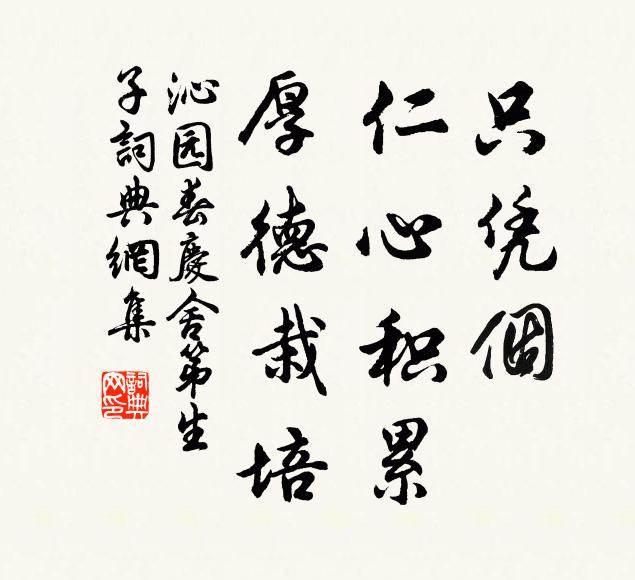 只凭個
仁心积累
厚德栽培
沁园春慶舍第生
子詞典網集
詞典
网印